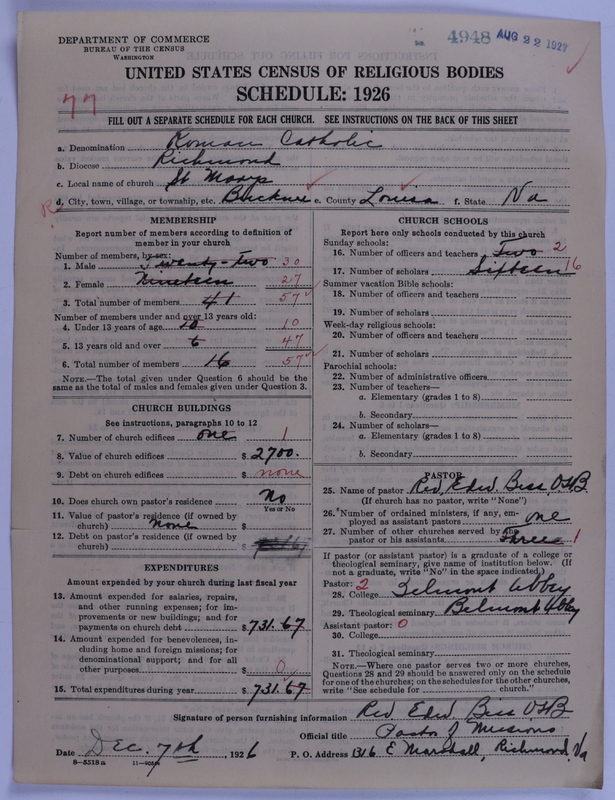 DEPARTMENT OF COMMERCE
BUREAU OF THE CENSUS
WASHINGTON
4948 AUG 22 1927
UNITED STATES CENSUS OF RELIGIOUS BODIES
SCHEDULE: 1926
77
FILL OUT A SEPARATE SCHEDULE FOR EACH CHURCH. SEE INSTRUCTIONS ON THE BACK OF THIS SHEET
a. Denomination Roman Catholic
b. Diocese Richmond
c. Local name of church St Marys
d. City, town, village, or township, etc. Buckner e. County Louisa f. State Va
MEMBERSHIP
Report number of members according to definition of
member in your church
Number of members, by sex:
1. Male Twenty-two 30
2. Female Nineteen 27
3. Total number of members 41 57
Number of members under and over 13 years old:
4. Under 13 years of age 10 10
5. 13 years old and over 6 47
6. Total number of members 16 57
NOTE.—The total given under Question 6 should be the
same as the total of males and females given under Question 3.
CHURCH BUILDINGS
See instructions, paragraphs 10 to 12
7. Number of church edifices one 1
8. Value of church edifices $ 2700.
9. Debt on church edifices $ none
10. Does church own pastor's residence No
Yes or No
11. Value of pastor's residence (if owned by
church) None $
12. Debt on pastor's residence (if owned by
church) $
EXPENDITURES
Amount expended by your church during last fiscal year
13. Amount expended for salaries, repairs,
and other running expenses; for im-
provements or new buildings; and for
payments on church debt $ 731.67
14. Amount expended for benevolences, in-
cluding home and foreign missions; for
denominational support; and for all
other purposes $ 0
15. Total expenditures during year $ 731.67
CHURCH SCHOOLS
Report here only schools conducted by this church
Sunday schools:
16. Number of officers and teachers Two 2
17. Number of scholars Sixteen 16
Summer vacation Bible schools:
18. Number of officers and teachers
19. Number of scholars
Week-day religious schools:
20. Number of officers and teachers
21. Number of scholars
Parochial schools:
22. Number of administrative officers
23. Number of teachers—
a. Elementary (grades 1 to 8)
b. Secondary
24. Number of scholars—
a. Elementary (grades 1 to 8)
b. Secondary
PASTOR
25. Name of pastor Rev. Edw. Bess, OSB
(If church has no pastor, write "None")
26. Number of ordained ministers, if any, em-
ployed as assistant pastors one
27. Number of other churches served by the
pastor or his assistants Three 1
If pastor (or assistant pastor) is a graduate of a college or
theological seminary, give name of institution below. (If
not a graduate, write "No" in the space indicated.)
Pastor: 2
28. College Belmont Abbey
29. Theological seminary Belmont Abbey
Assistant pastor: 0
30. College
31. Theological seminary
NOTE.—Where one pastor serves two or more churches,
Questions 28 and 29 should be answered only on the schedule
for one of the churches; on the schedules for the other churches,
write "See schedule for church."
Signature of person furnishing information Rev Edw Bess OSB
Official title Pastor of Missions
Date Dec. 7th, 1926 P. O. Address 1316 E Marshall, Richmond, Va
8—5518a